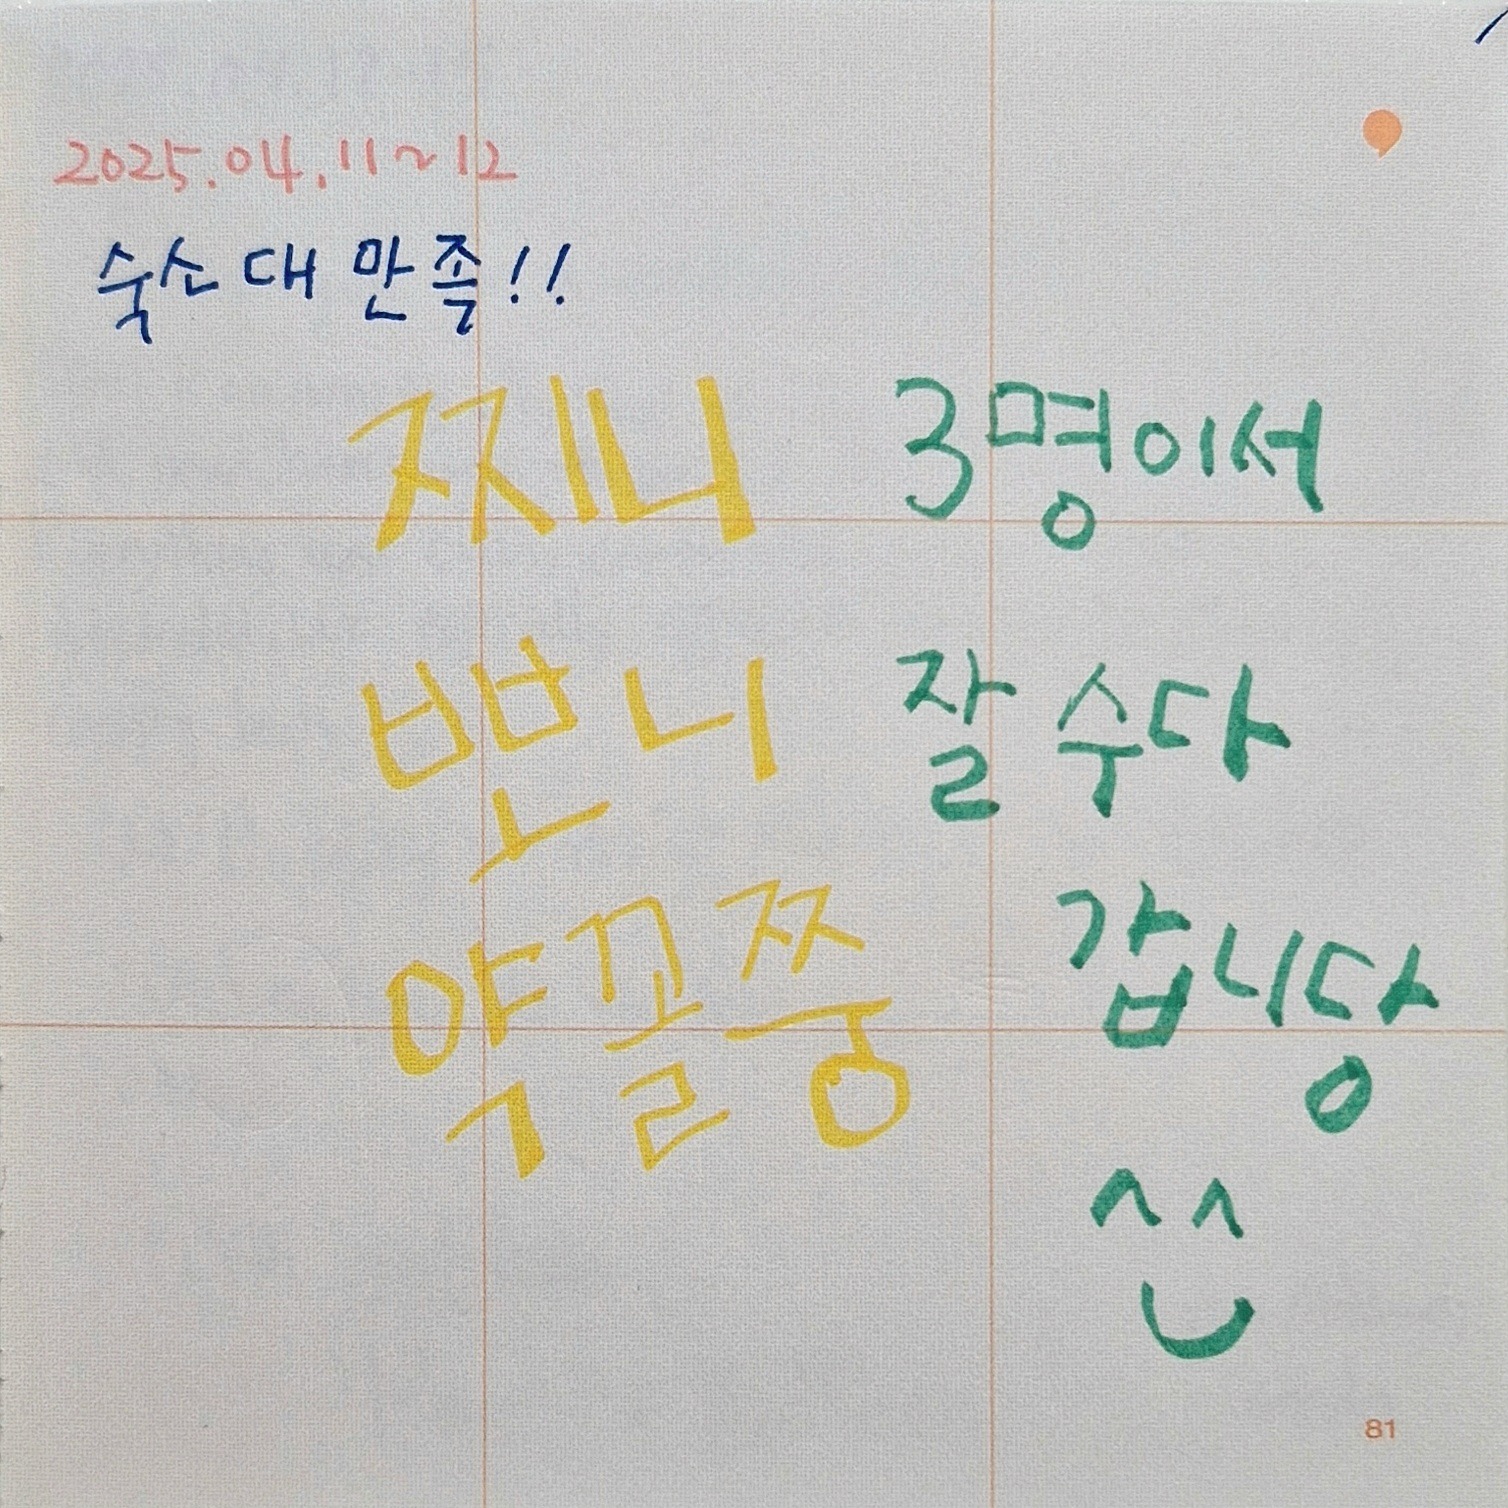 2025.04.11~12
숙소 대 만 족!!
찌니
뽄니
약꼴쭝
3명이서
잘 수다
갑니당
^^
81